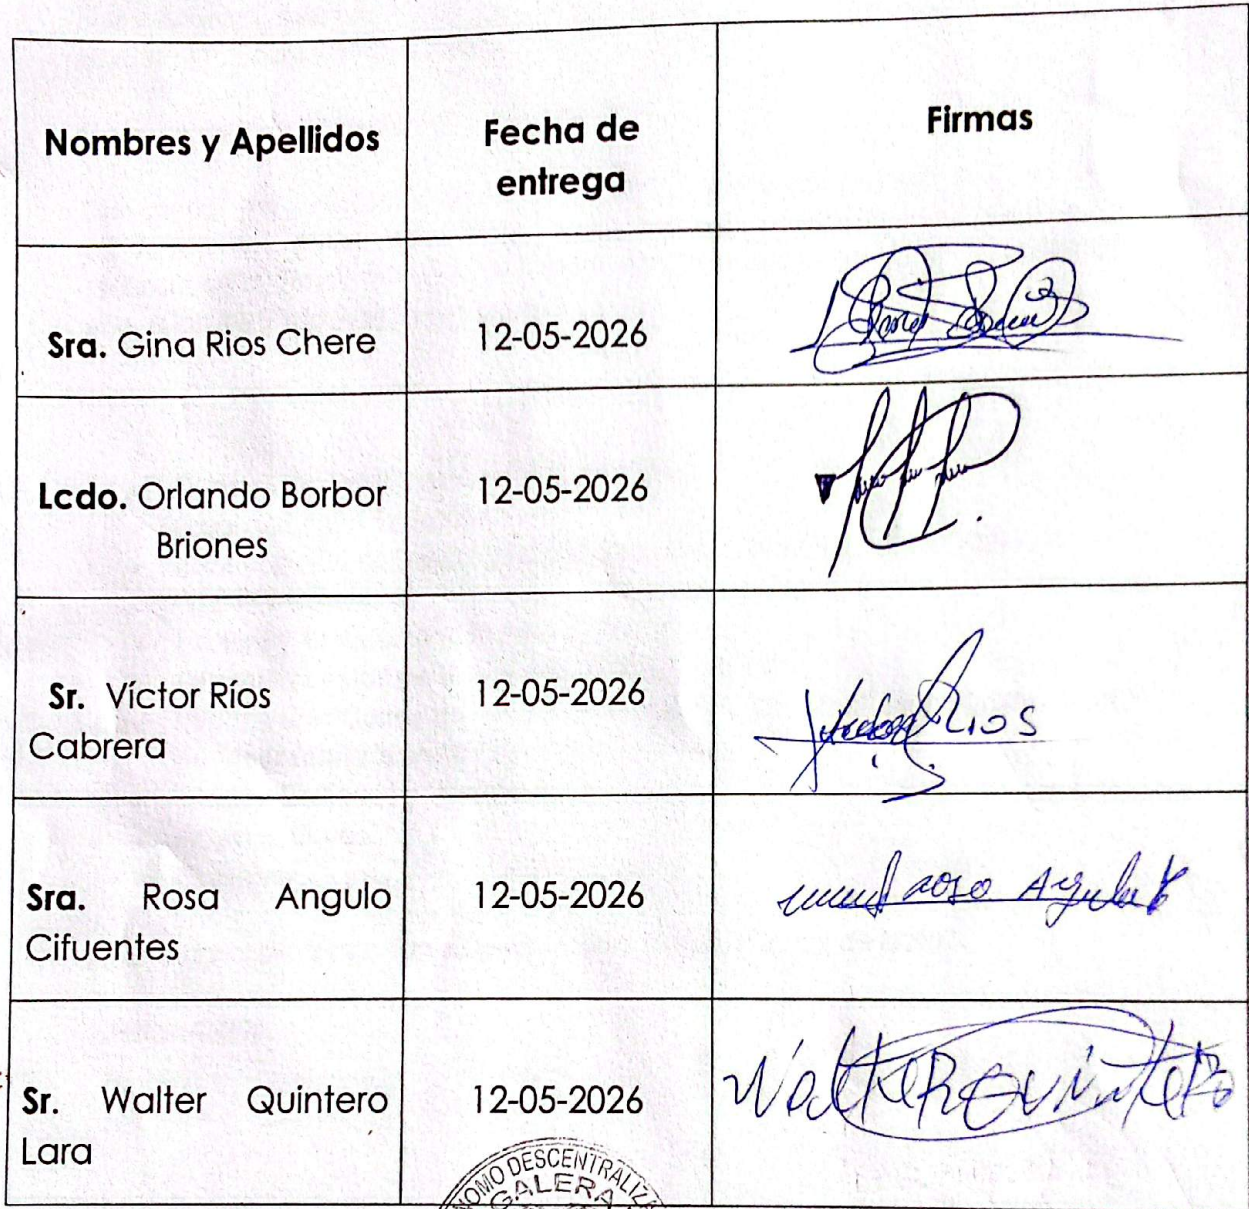 Nombres y Apellidos
Fecha de
entrega
Firmas
Sra. Gina Rios Chere
12-05-2026
Lcdo. Orlando Borbor
Briones
12-05-2026
Sr. Víctor Ríos
Cabrera
12-05-2026
Rios
Sra. Rosa Angulo
Cifuentes
12-05-2026
Rosa Angulo
Sr. Walter Quintero
Lara
12-05-2026
Walter Quintero
NOMO DESCENTRALIZ
GALERA